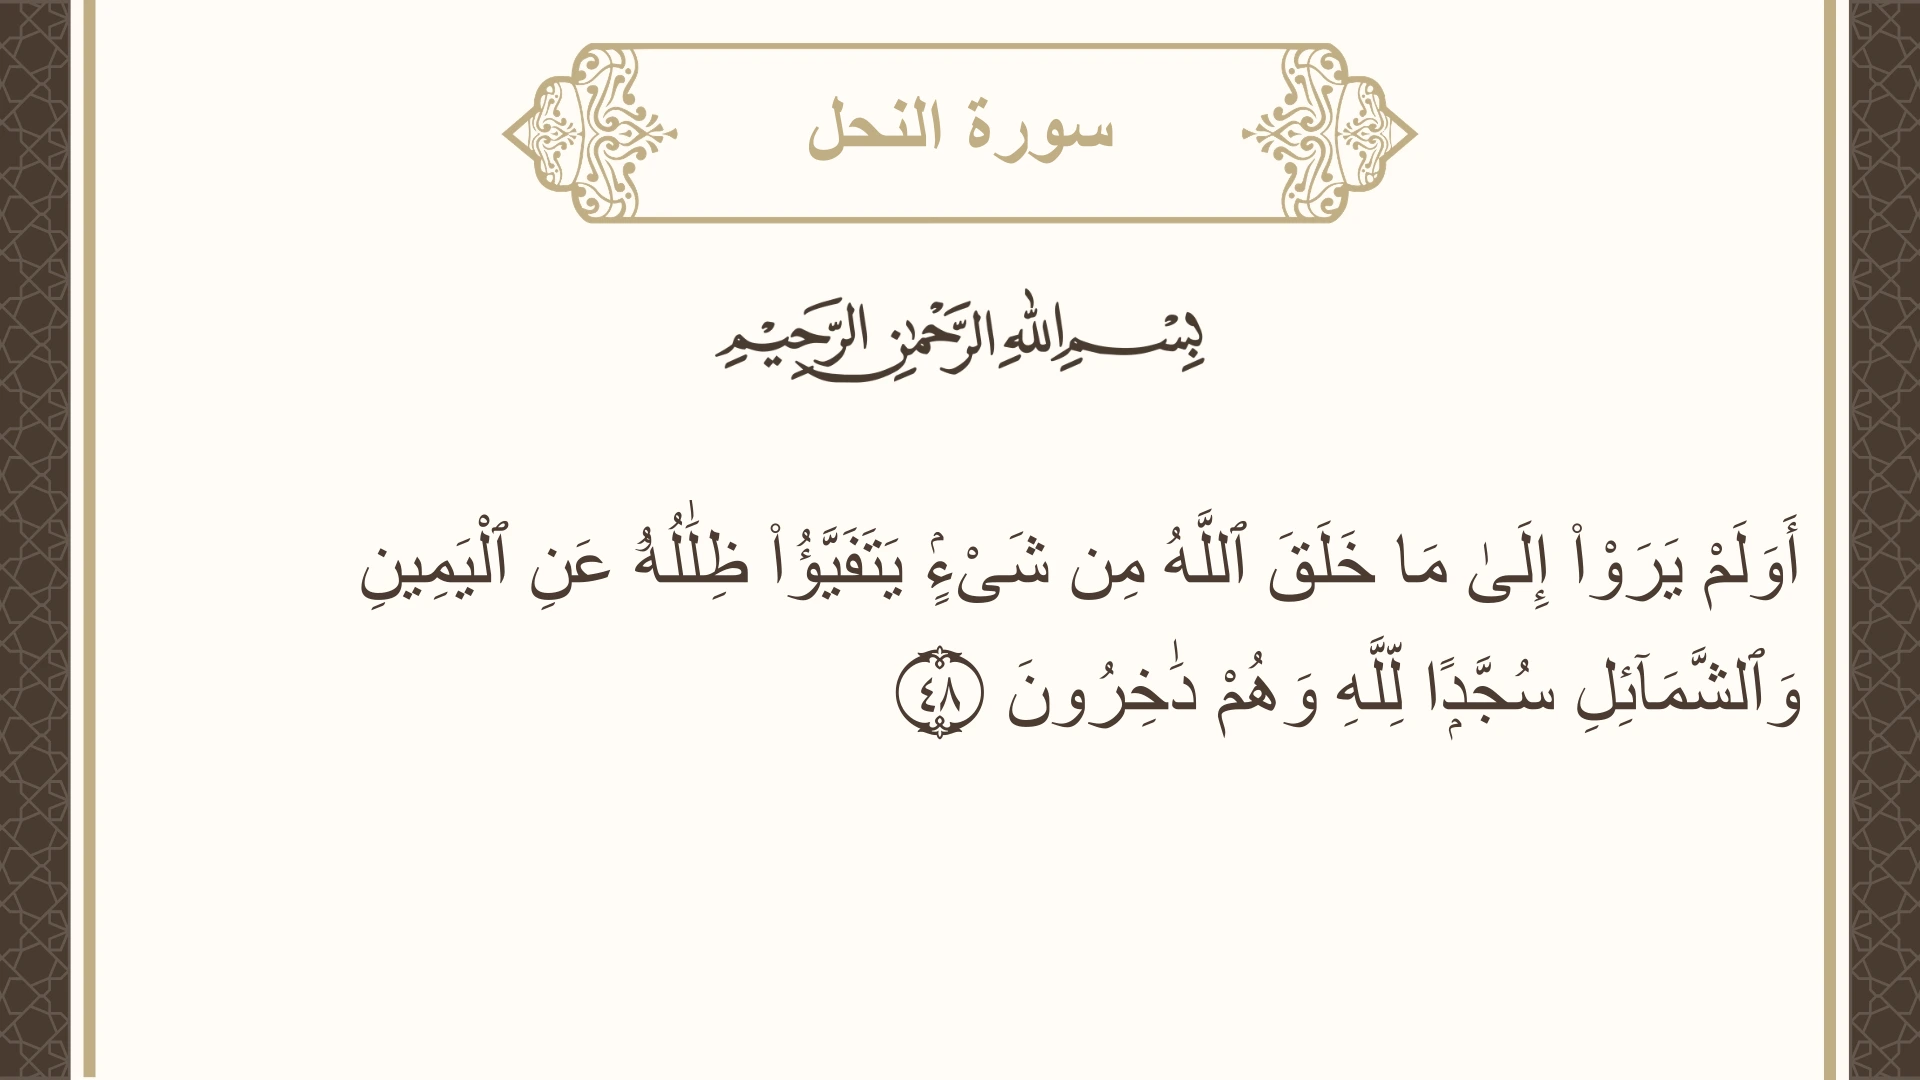 سورة النحل
بِسْمِ اللهِ الرَّحْمٰنِ الرَّحِيْمِ
أَوَلَمْ يَرَوْا۟ إِلَىٰ مَا خَلَقَ ٱللَّهُ مِن شَىْءٍۢ يَتَفَيَّؤُا۟ ظِلَـٰلُهُۥ عَنِ ٱلْيَمِينِ
وَٱلشَّمَآئِلِ سُجَّدًۭا لِّلَّهِ وَهُمْ دَٰخِرُونَ ٤٨